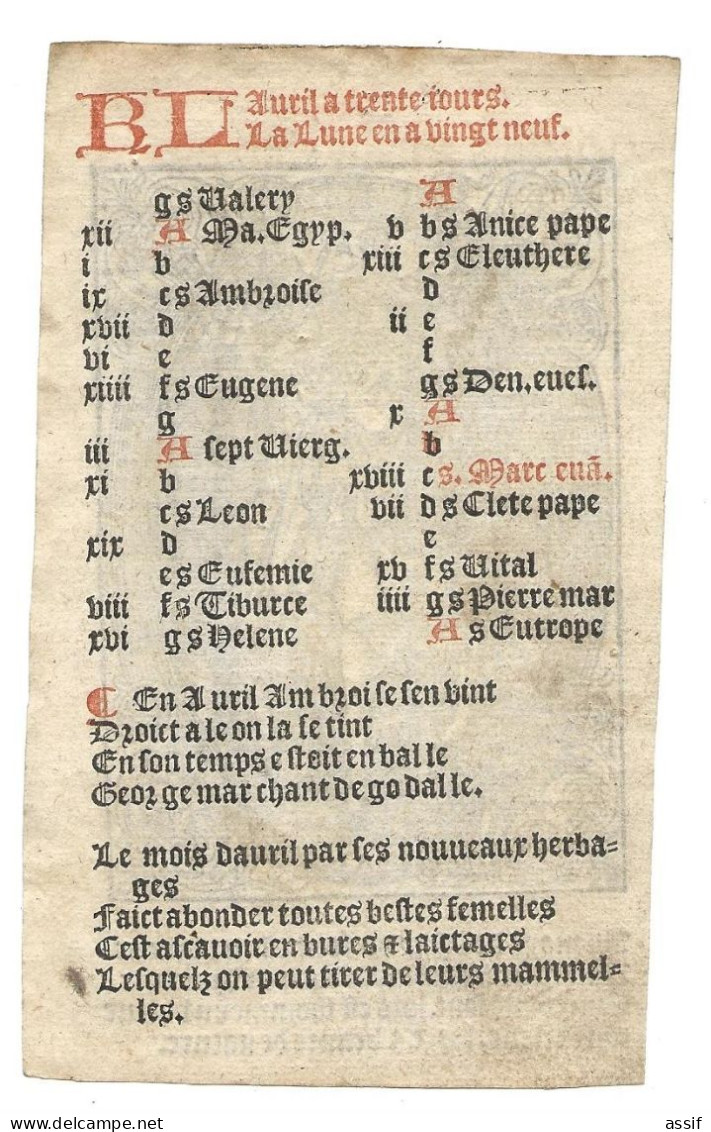 KL Auril a trente iours.
La Lune en a vingt neuf.
g s Ualery
xii A Ma. Egyp.
i b
ix c s Ambroise
xvii d
vi e
xiiii f s Eugene
g
iii A sept Uierg.
xi b
c s Leon
xix d
e s Eufemie
viii f s Tiburce
xvi g s Helene
A
v b s Anice pape
xiii c s Eleuthere
d
ii e
f
g s Den. eues.
x A
b
xviii c s. Marc euã.
vii d s Clete pape
e
xv f s Uital
iiii g s Pierre mar
A s Eutrope
C En Auril Ambroise sen vint
Droict a leon la se tint
En son temps estoit en balle
George marchant de godalle.
Le mois dauril par ses nouueaux herba=
ges
Faict abonder toutes bestes femelles
Cest ascauoir en bures & laictages
Lesquelz on peut tirer de leurs mammel=
les.
assif